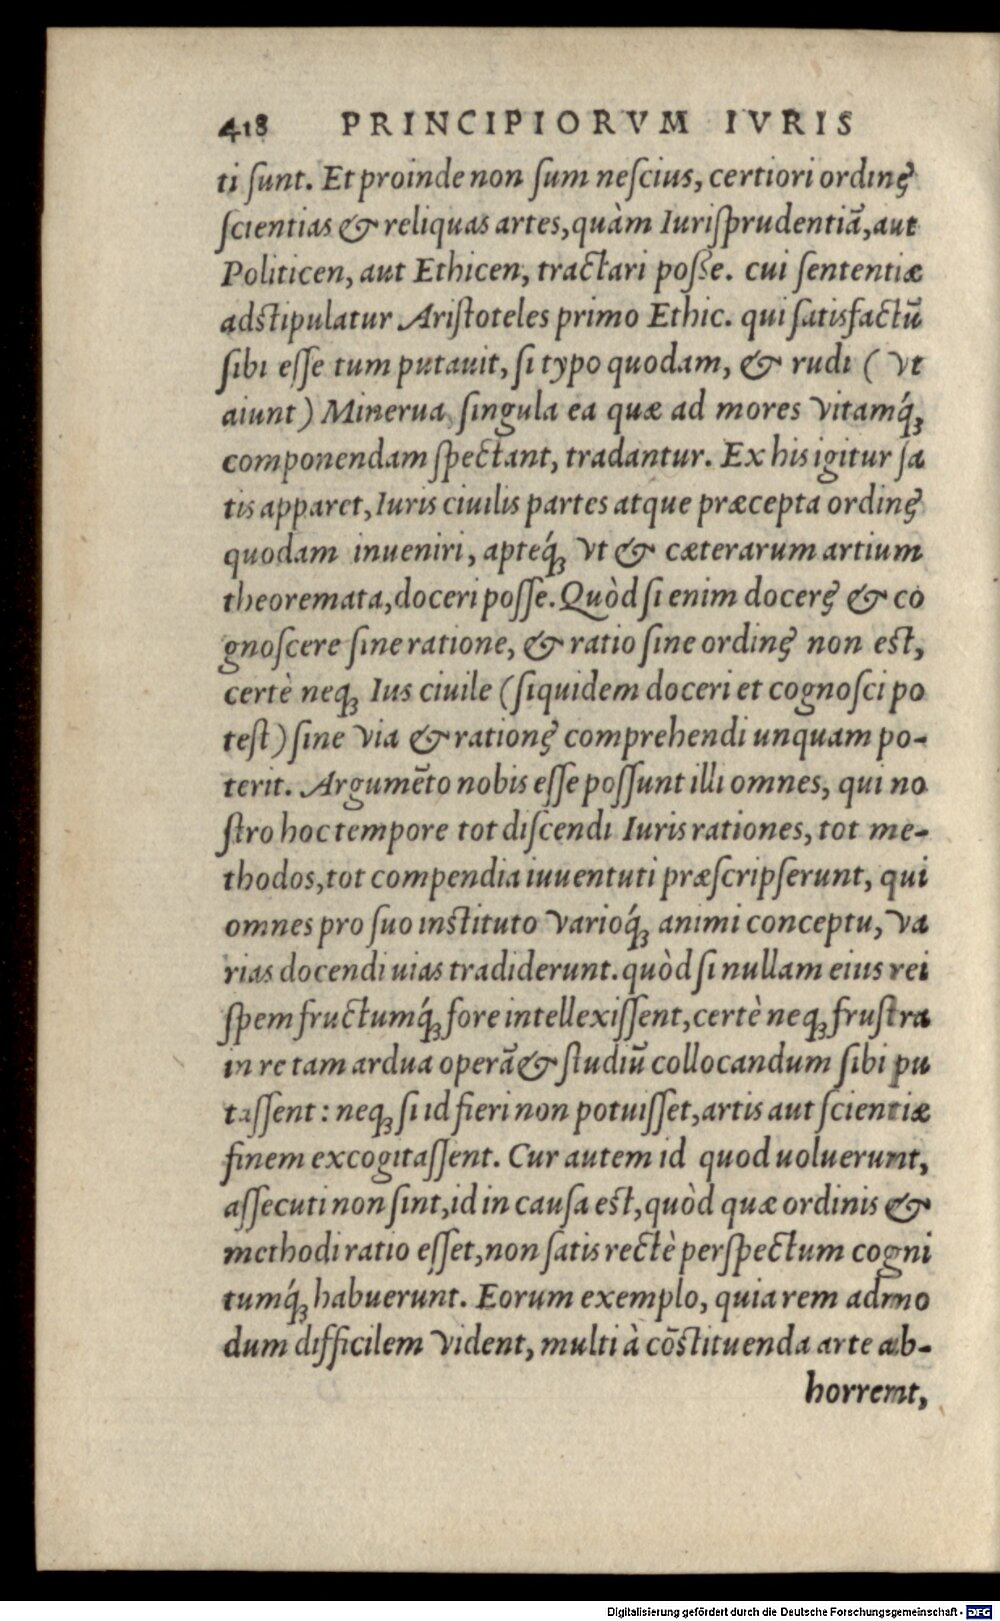 418 PRINCIPIORVM IVRIS
ti ſunt. Et proinde non ſum neſcius, certiori ordinę
ſcientias & reliquas artes, quàm Iuriſprudentiā, aut
Politicen, aut Ethicen, tractari poſſe. cui ſententiæ
adstipulatur Ariſtoteles primo Ethic. qui ſatisfactū
ſibi eſſe tum putauit, ſi typo quodam, & rudi ( vt
aiunt ) Minerua ſingula ea quæ ad mores vitamq́;
componendam ſpectant, tradantur. Ex his igitur ſa
tis apparet, Iuris ciuilis partes atque præcepta ordinę
quodam inueniri, apteq́; vt & cæterarum artium
theoremata, doceri poſſe. Quòd ſi enim docerę & co
gnoſcere ſine ratione, & ratio ſine ordinę non est,
certè neq; Ius ciuile (ſiquidem doceri et cognoſci po
teſt) ſine via & rationę comprehendi unquam po-
terit. Argumēto nobis eſſe poſſunt illi omnes, qui no
ſtro hoc tempore tot diſcendi Iuris rationes, tot me-
thodos, tot compendia iuuentuti præſcripſerunt, qui
omnes pro ſuo instituto varioq́; animi conceptu, va
rias docendi uias tradiderunt. quòd ſi nullam eius rei
ſpem fructumq́; fore intellexiſſent, certè neq; fruſtra
in re tam ardua operā & ſtudiū collocandum ſibi pu
taſſent: neq; ſi id fieri non potuiſſet, artis aut ſcientiæ
finem excogitaſſent. Cur autem id quod uoluerunt,
aſſecuti non ſint, id in cauſa est, quòd quæ ordinis &
methodi ratio eſſet, non ſatis rectè perſpectum cogni
tumq́; habuerunt. Eorum exemplo, quia rem admo
dum difficilem vident, multi à cōstituenda arte ab-
horrent,
Digitalisierung gefördert durch die Deutsche Forschungsgemeinschaft - DFG